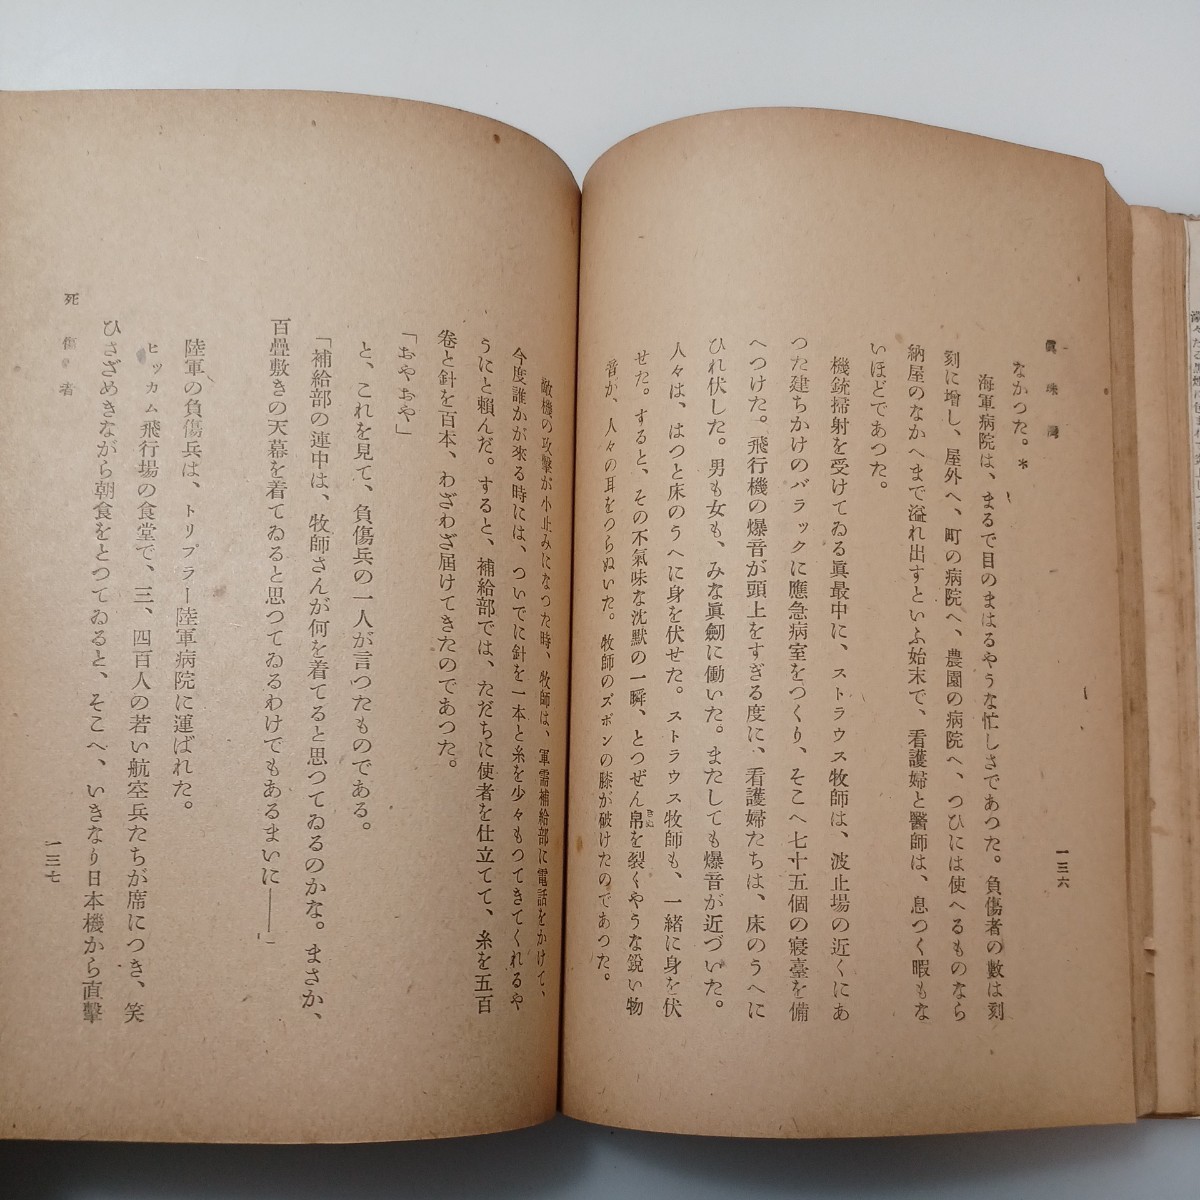 眞珠灣
一三六
なかつた。*
海軍病院は、まるで目のまはるやうな忙しさであつた。負傷者の數は刻
刻に增し、屋外へ、町の病院へ、農園の病院へ、つひには使へるものなら
納屋のなかへまで溢れ出すといふ始末で、看護婦と醫師は、息つく暇もな
いほどであつた。
機銃掃射を受けてゐる眞最中に、ストラウス牧師は、波止場の近くにあ
つた建ちかけのバラックに應急病室をつくり、そこへ七十五個の寢臺を備
へつけた。飛行機の爆音が頭上をすぎる度に、看護婦たちは、床のうへに
ひれ伏した。男も女も、みな眞劍に働いた。またしても爆音が近づいた。
人々は、はつと床のうへに身を伏せた。ストラウス牧師も、一緒に身を伏
せた。すると、その不氣味な沈默の一瞬、とつぜん帛を裂くやうな銳い物
音が、人々の耳をつらぬいた。牧師のズボンの膝が破けたのであつた。
敵機の攻擊が小止みになつた時、牧師は、軍需補給部に電話をかけて、
今度誰かが來る時には、ついでに針を一本と糸を少々もつてきてくれるや
うにと賴んだ。すると、補給部では、ただちに使者を仕立てて、糸を五百
卷と針を百本、わざわざ届けてきたのであつた。
「おやおや」
と、これを見て、負傷兵の一人が言つたものである。
「補給部の連中は、牧師さんが何を着てると思つてゐるのかな。まさか、
百疊敷きの天幕を着てゐると思つてゐるわけでもあるまいに――」
陸軍の負傷兵は、トリプラー陸軍病院に運ばれた。
ヒッカム飛行場の食堂で、三、四百人の若い航空兵たちが席につき、笑
ひさざめきながら朝食をとつてゐると、そこへ、いきなり日本機から直擊
死傷者
一三七